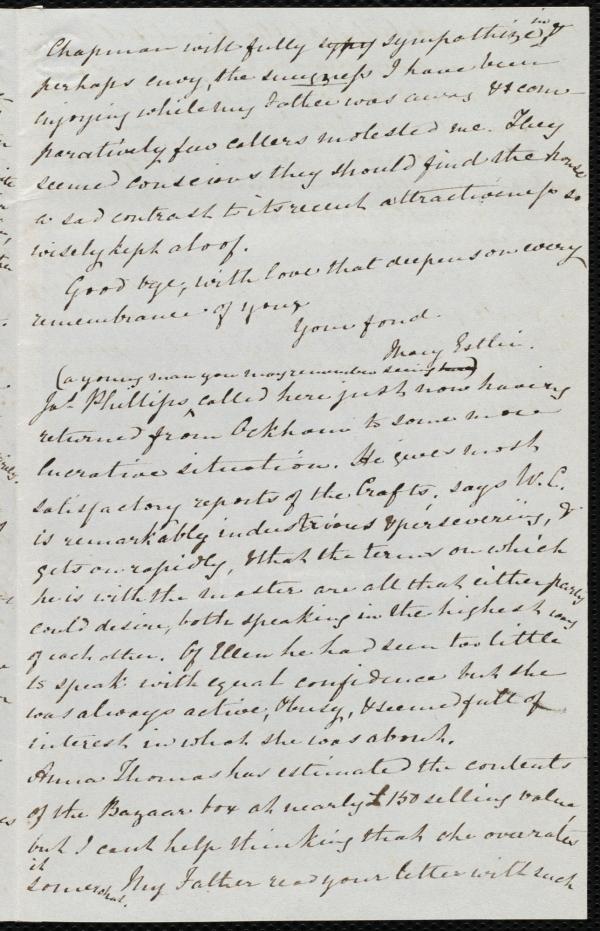 Chapman will fully sympathize in, &
perhaps envy, the snugness I have been
enjoying while my Father was away & com-
paratively few callers molested me. They
seemed conscious they should find the house
a sad contrast to its recent attractiveness so
wisely kept aloof.
Good bye, with love that deepens on every
remembrance of you,
Your fond.
Mary Estlin.
(a young man you may remember seeing here)
Jas. Phillips called here just now having
returned from Ockham to some more
lucrative situation. He gives most
satisfactory reports of the Crafts, says W.C.
is remarkably industrious & persevering, &
gets on rapidly, & that the terms on which
he is with the master are all that either party
could desire, both speaking in the highest way
of each other. Of Ellen he had seen too little
to speak with equal confidence but she
was always active, & busy, & seemed full of
interest in what she was about.
Anna Thomas has estimated the contents
of the Bazaar box at nearly £150 selling value
but I can't help thinking that she overrates
it
somewhat. My Father read your letter with such